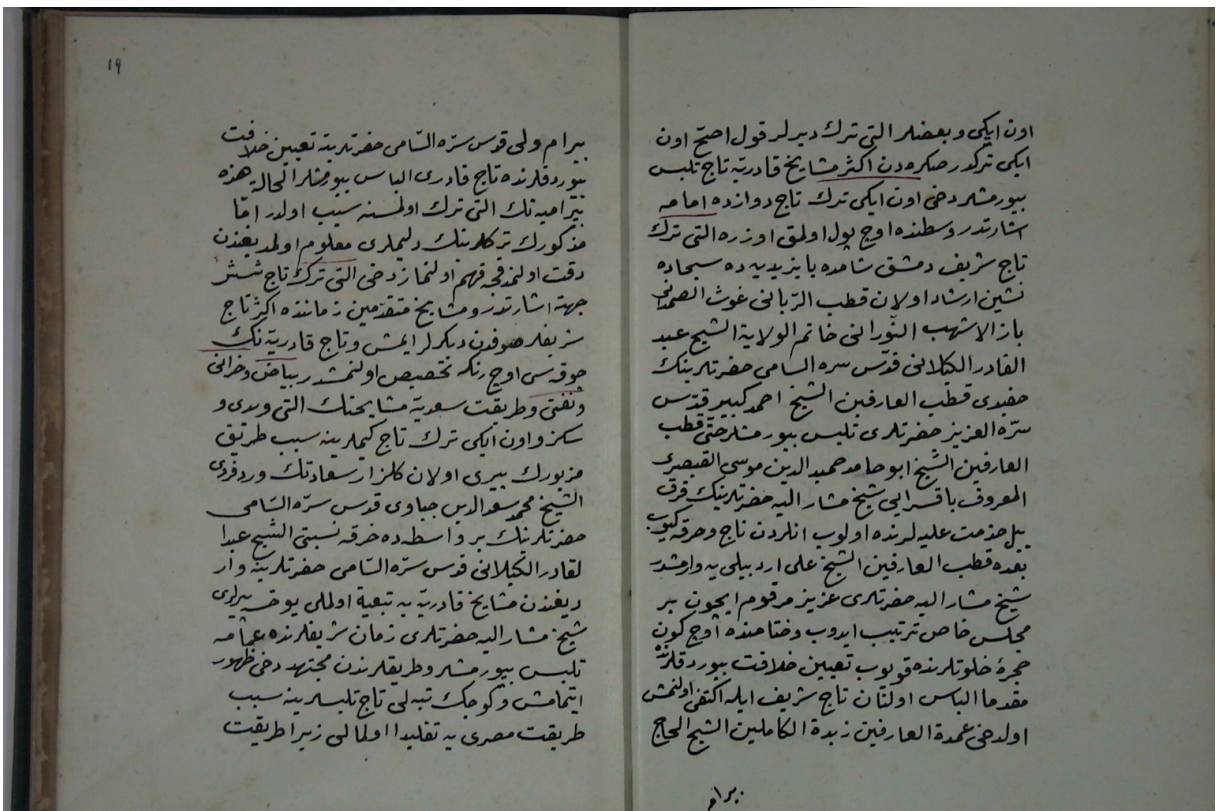 اون ایکی و بعضلر التی ترك دیرلر قول اصح اون
ایکی ترکدر صکره دن اکثر مشایخ قادریه تاج تلبس
بیورمشلر دخی اون ایکی ترك تاج دوازده امامه
اشارتدر وسطنده اوج پول اولمق اوزره التی ترك
تاج شریف دمشق شامده بایزیدیه ده سجاده
نشین ارشاد اولان قطب الربانی غوث الصمدانی
باز الاشهب النورانی خاتم الولایة الشیخ عبد
القادر الکیلانی قدس سره السامی حضرتلرینك
حفیدی قطب العارفین الشیخ احمد کبیر قدس
سره العزیز حضرتلری تلبس بیورمشلر حتی قطب
العارفین الشیخ ابو حامد حمید الدین موسی القیصری
المعروف باقسرایی شیخ مشار الیه حضرتلرینك قرق
ییل خدمت علیه لرنده اولوب انلردن تاج و خرقه کیوب
بعده قطب العارفین الشیخ علی اردبیلی یه وارمشدر
شیخ مشار الیه حضرتلری عزیز مرقوم ایچون بر
مجلس خاص ترتیب ایدوب وختامنده اوج کون
حجرهٔ خلوتلرنده قویوب تعیین خلافت بیوردقلرنده
مقدما الباس اولنان تاج شریف ایله اکتفی اولنمش
اولدخی عمدة العارفین زبدة الکاملین الشیخ الحاج
بیرام
۱۹
بیرام ولی قدس سره السامی حضرتلرینه تعیین خلافت
بیوردقلرنده تاج قادری الباس بیورمشلر الحالة هذه
بیرامیه نك التی ترك اولمسنه سبب اولدر اما
مذکورك ترکلرینك دلیللری معلوم اولمدیغندن
دقت اولنمدقجه فهم اولنماز دخی التی ترك تاج شش
جهته اشارتدر و مشایخ متقدمین زماننده اکثر تاج
شریفلر صوفدن دیکرلر ایمش و تاج قادریه نك
جوقه سی اوج رنکه تخصیص اولنمشدر بیاض و خرانی
و نفتی و طریقت سعدیه مشایخنك التی و یدی و
سکز و اون ایکی ترك تاج کیملرینه سبب طریق
مزبورك پیری اولان کلزار سعادتك ورد فردی
الشیخ محمد سعد الدین جباوی قدس سره السامی
حضرتلرینك بر واسطه ده خرقه نسبتی الشیخ عبدا
لقادر الکیلانی قدس سره السامی حضرتلرینه وار
دیغندن مشایخ قادریه یه تبعیة اولملی یوخسه پیرلری
شیخ مشار الیه حضرتلری زمان شریفلرنده عمامه
تلبس بیورمشلر و طریقلرندن مجتهد دخی ظهور
ایتمامش و کوجك تپه لی تاج تلبسلرینه سبب
طریقت مصری یه تقلیدا اولمالی زیرا طریقت